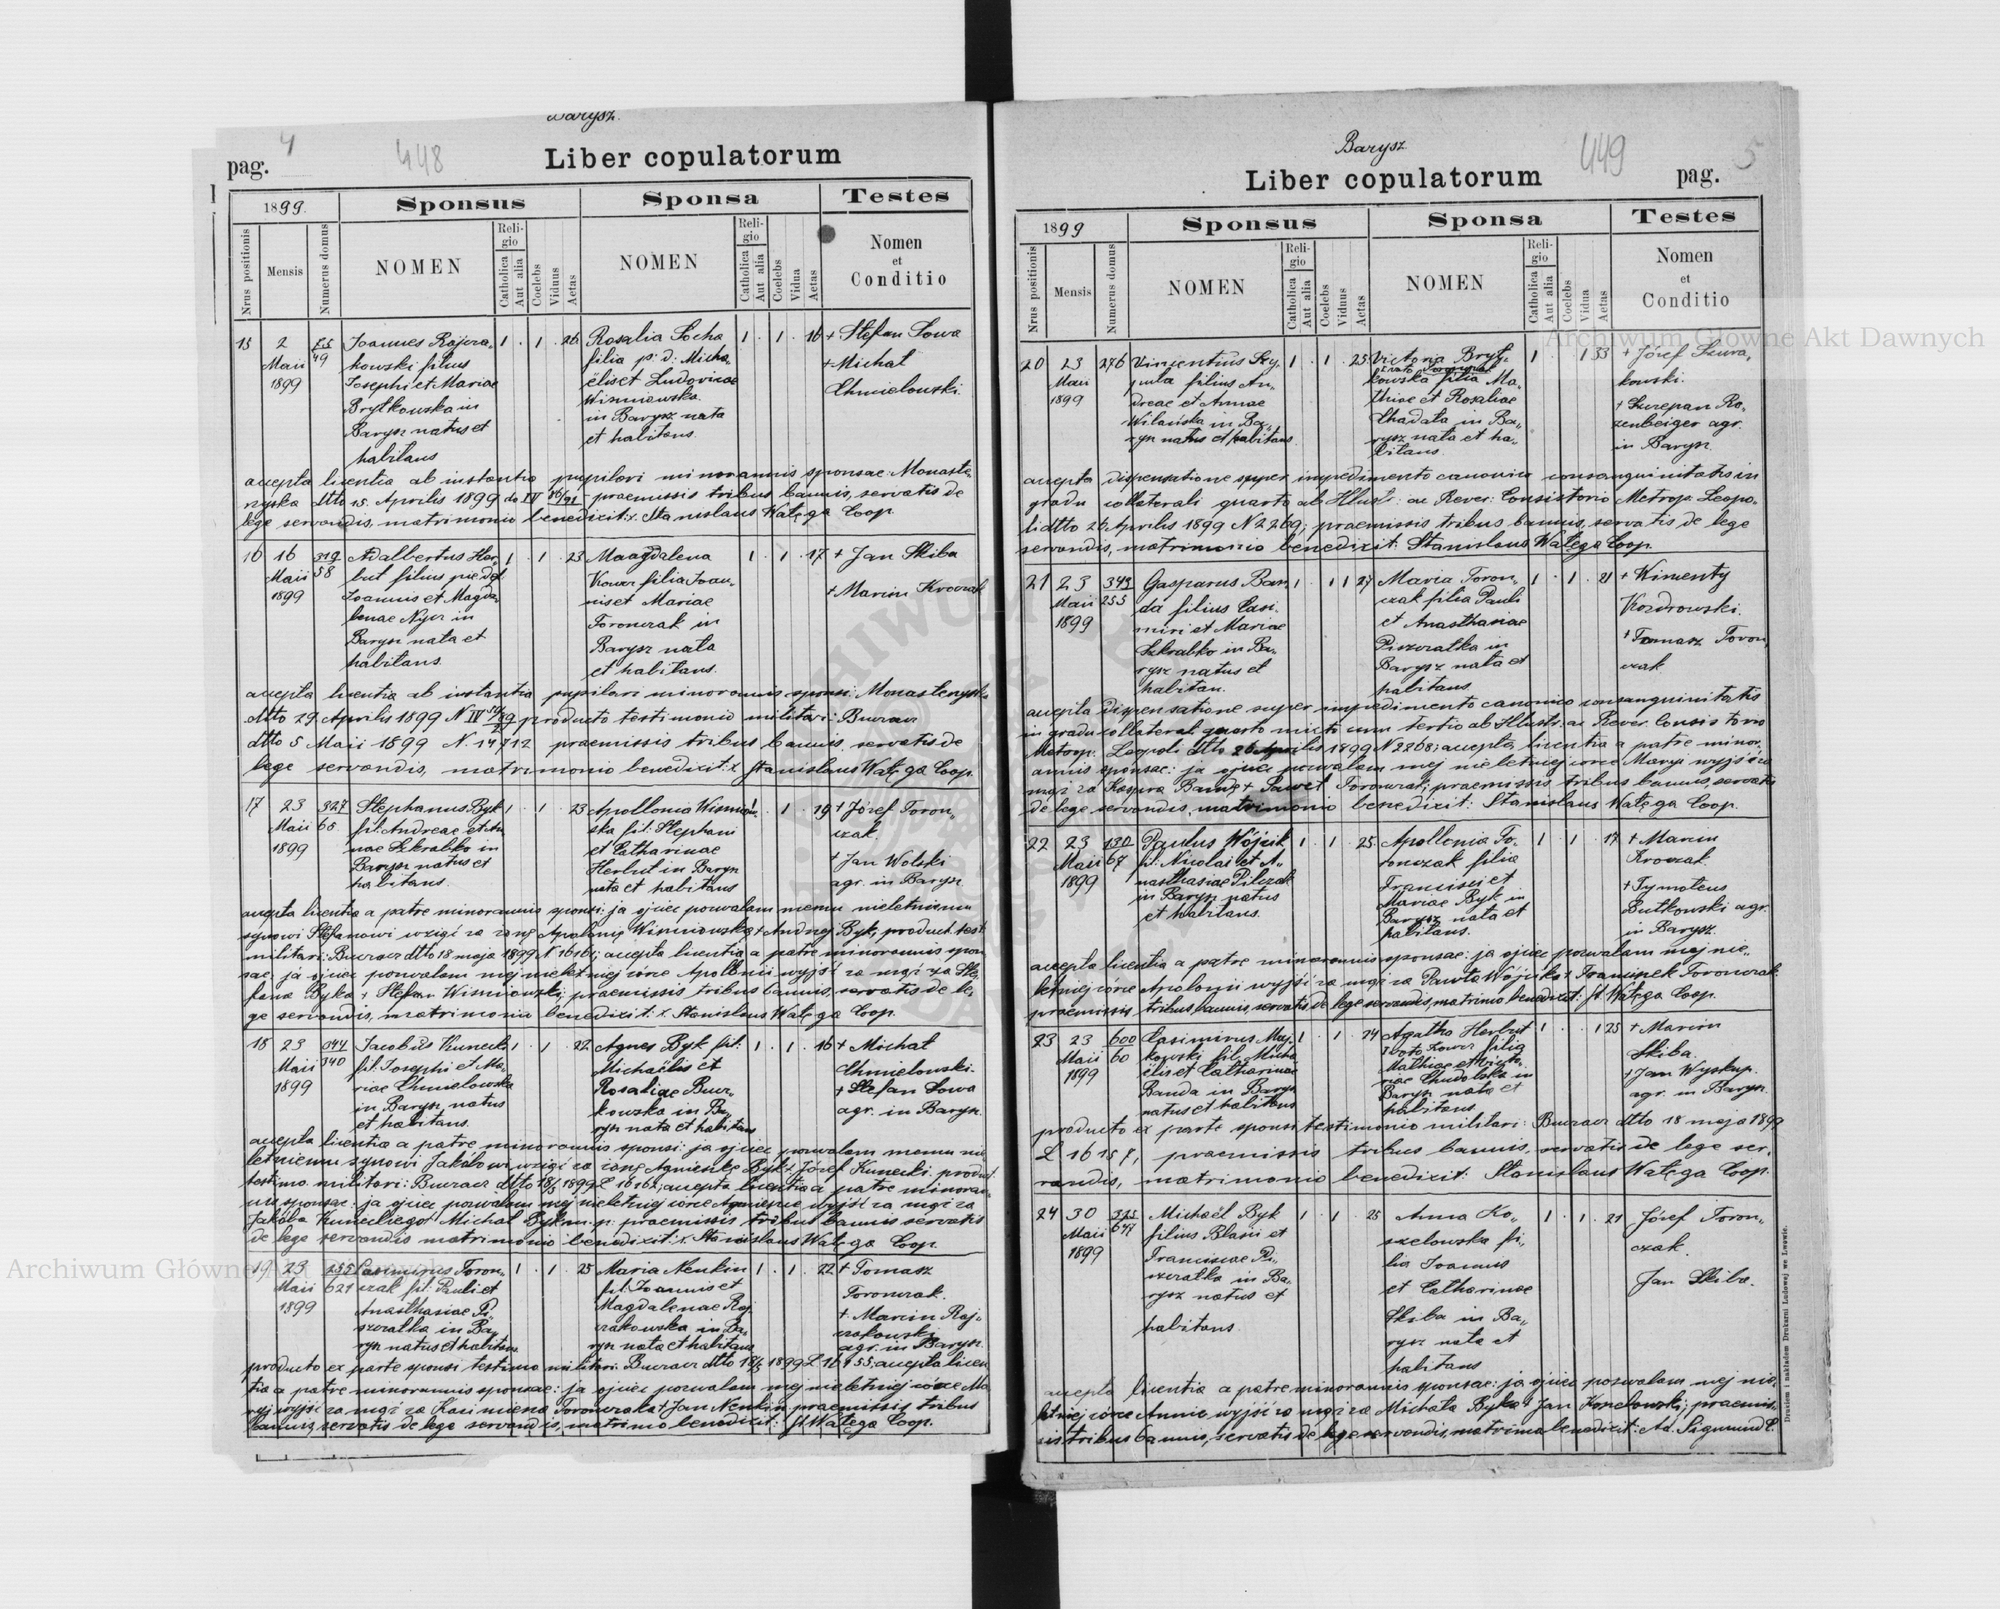 Barysz.
pag. 4
448
Liber copulatorum
1899.
Sponsus
Sponsa
Testes
Nrus positionis
Mensis
Numerus domus
NOMEN
Religio
Catholica
Aut alia
Coelebs
Viduus
Aetas
NOMEN
Religio
Catholica
Aut alia
Coelebs
Vidua
Aetas
Nomen
et
Conditio
15 2 Maii 1899
49
Joannes Rajcza-
kowski filius
Josephi et Mariae
Brytkowska in
Barysz natus et
habitans
1 . 1 . 26
Rosalia Socha
filia p: d: Micha-
ëlis et Ludovicae
Wiśniewska
in Barysz nata
et habitans.
1 . 1 . 16
+ Stefan Sowa
+ Michał
Chmielowski.
accepta licentia ab instantia pupilari minorennis sponsae: Monaste-
rzyska dtto 15. Aprilis 1899 do IV 86/91 - praemissis tribus bannis, servatis de
lege servandis, matrimonio benedixit: x. Stanislaus Watęga Coop.
16 16 Maii 1899
319
58
Adalbertus Her-
but filius pie def
Joannis et Magda-
lenae Nyer in
Barysz nata et
habitans.
1 . 1 . 23
Maagdalena
Kower filia Joan-
nis et Mariae
Toronczak in
Barysz nata
et habitans.
1 . 1 . 17
+ Jan Skiba
+ Marcin Kroczak
accepta licentia ab instantia pupilari minorennis sponsi: Monasterzyska
dtto 29. Aprilis 1899 N IV producto testimonio militari: Buczacz
dtto 5 Maii 1899 N. 14712 praemissis tribus bannis, servatis de
lege servandis, matrimonio benedixit: x Stanislaus Watęga Coop.
17 23 Maii 1899
327
65
Stephanus Byk
fil: Andreae et An
nae Szkrabko in
Barysz natus et
habitans.
1 . 1 . 23
Apollonia Wiśniow-
ska fil: Stephani
et Catharinae
Herbut in Barysz
nata et habitans
1 . 1 . 19
+ Józef Toron-
czak.
+ Jan Wolski
agr. in Barysz
accepta licentia a patre minorennis sponsi: ja ojciec pozwalam memu nieletniemu
synowi Stefanowi wziąć za żonę Apolonię Wiśniowską + Andrzej Byk, product. test:
militari: Buczacz dtto 18 maja 1899 N 16161; accepta licentia a patre minorennis spon-
sae, ja ojciec pozwalam mej nieletniej córce Apollonii wyjść za mąż za Ste-
fana Byka + Stefan Wiśniowski; praemissis tribus bannis, servatis de le-
ge servandis, matrimonio benedixit: x. Stanislaus Watęga Coop.
18 23 Maii 1899
340
Jacobus Kunecki
fil: Josephi et Ma-
riae Chmielowska
in Barysz natus
et habitans.
1 . 1 . 22
Agnes Byk fil:
Michaëlis et
Rosaliae Bucz-
kowska in Ba-
rysz nata et habitans
1 . 1 . 16
+ Michał
Chmielowski.
+ Stefan Sowa
agr. in Barysz.
accepta licentia a patre minorennis sponsi: ja ojciec pozwalam memu nie-
letniemu synowi Jakóbowi wziąć za żonę Agnieszkę Byk + Józef Kunecki. product.
testimo: militari: Buczacz dtto 18/5 1899 L 16162; accepta licentia a patre minoren-
nis sponsae: ja ojciec pozwalam mej nieletniej córce Agnieszce wyjść za mąż za
Jakóba Kuneckiego + Michał Byk m. p: praemissis tribus bannis servatis
de lege servandis matrimonio benedixit: x. Stanislaus Watęga Coop.
19 23 Maii 1899
255
621
Casimirus Toron-
czak fil: Pauli et
Anasthasiae Pi-
szczatka in Ba-
rysz natus et habitans
1 . 1 . 25
Maria Nenkin
fil: Joannis et
Magdalenae Raj-
czakowska in Ba-
rysz nata et habitans
1 . 1 . 22
+ Tomasz
Toronczak.
+ Marcin Raj-
czakowski
agr. in Barysz.
producto ex parte sponsi testimo militari: Buczacz dtto 18/5 1899 L 16155; accepta licen-
tia a patre minorennis sponsae: ja ojciec pozwalam mej nieletniej córce Ma-
ryi wyjść za mąż za Kazimierza Toronczaka + Jan Nenkin, praemissis tribus
bannis, servatis de lege servandis, matrimo benedixit: St. Watęga Coop.
Barysz
449
Liber copulatorum
pag. 5
1899
Sponsus
Sponsa
Testes
Nrus positionis
Mensis
Numerus domus
NOMEN
Religio
Catholica
Aut alia
Coelebs
Viduus
Aetas
NOMEN
Religio
Catholica
Aut alia
Coelebs
Vidua
Aetas
Nomen
et
Conditio
20 23 Maii 1899
276
Vincentius Szy-
pula filius An-
dreae et Annae
Wilańska in Ba-
rysz natus et habitans
1 . 1 . 25.
Victoria Bryt-
kowska filia Ma-
thiae et Rosaliae
Chadała in Ba-
rysz nata et ha-
bitans.
1 . 1 33
+ Józef Szwra-
kowski.
+ Szczepan Ro-
zenbeiger agr.
in Barysz.
accepta dispensatione super impedimento canonico consanguinitatis in
gradu collaterali quarto ab Illustr: ac Rever: Consistorio Metrop: Leopo-
li dtto 26 Aprilis 1899 N 2269; praemissis tribus bannis, servatis de lege
servandis, matrimonio benedixit: Stanislaus Watęga Coop.
21 23 Maii 1899
343
255
Gasparus Ban-
da filius Casi-
miri et Mariae
Szkrabko in Ba-
rysz natus et
habitan.
1 . 1 1 27
Maria Toron-
czak filia Pauli
et Anasthasiae
Piszczatka in
Barysz nata et
habitans.
1 . 1 . 21
+ Klimenty
Kozdrowski.
+ Tomasz Toron-
czak
accepta dispensatione super impedimento canonico consanguinitatis
in gradu collateral quarto mixto cum tertio ab Illustr: ac Rever. Consistorio
Metrop. Leopoli dtto 26 Aprilis 1899 N 2268; accepta licentia a patre minor-
ennis sponsae: ja ojciec pozwalam mej nieletniej córce Maryi wyjść za
mąż za Kaspra Bandę + Paweł Toronczak; praemissis tribus bannis, servatis
de lege servandis, matrimonio benedixit: Stanislaus Watęga Coop.
22 23 Maii 1899
130
67
Paulus Wójcik
fil: Nicolai et A-
nasthasiae Pilczak
in Barysz natus
et habitans.
1 . 1 . 25.
Apollonia To-
ronczak filia
Francisci et
Mariae Byk in
Barysz nata et
habitans.
1 . 1 . 17
+ Marcin
Kroczak.
+ Tymoteus
Butkowski agr.
in Barysz.
accepta licentia a patre minorennis sponsae: ja ojciec pozwalam mej nie-
letniej córce Apolonii wyjść za mąż za Pawła Wójcika + Franciszek Toronczak.
praemissis tribus bannis, servatis de lege servandis, matrimo benedixit: St. Watęga Coop.
23 23 Maii 1899
600
60
Casimirus Maj-
kowski fil: Micha-
ëlis et Catharinae
Banda in Barysz
natus et habitans
1 . 1 . 24
Agatha Herbut
1voto Kower filia
Mathiae et Victo-
riae Chudolska in
Barysz nata et
habitans.
1 . 1 25
+ Marcin
Skiba.
+ Jan Wyskup.
agr. in Barysz.
producto ex parte sponsi testimonio militari: Buczacz dtto 18 maja 1899
L 16157, praemissis tribus bannis, servatis de lege ser-
vandis, matrimonio benedixit: Stanislaus Watęga Coop.
24 30 Maii 1899
325
647
Michaël Byk
filius Blasii et
Franciscae Pi-
szczatka in Ba-
rysz natus et
habitans.
1 . 1 . 25
Anna Ko-
szelowska fi-
lia Joannis
et Catharinae
Skiba in Ba-
rysz nata et
habitans
1 . 1 . 21
Józef Toron-
czak.
Jan Skiba.
accepta licentia a patre minorennis sponsae: ja ojciec pozwalam mej nie-
letniej córce Annie wyjść za mąż za Michała Byka + Jan Koszelowski; praemis-
sis tribus bannis, servatis de lege servandis, matrimo benedixit: Ad. Sigmund C.
Drukiem i nakładem Drukarni Ludowej we Lwowie.
Archiwum Główne Akt Dawnych
Archiwum Główne Akt